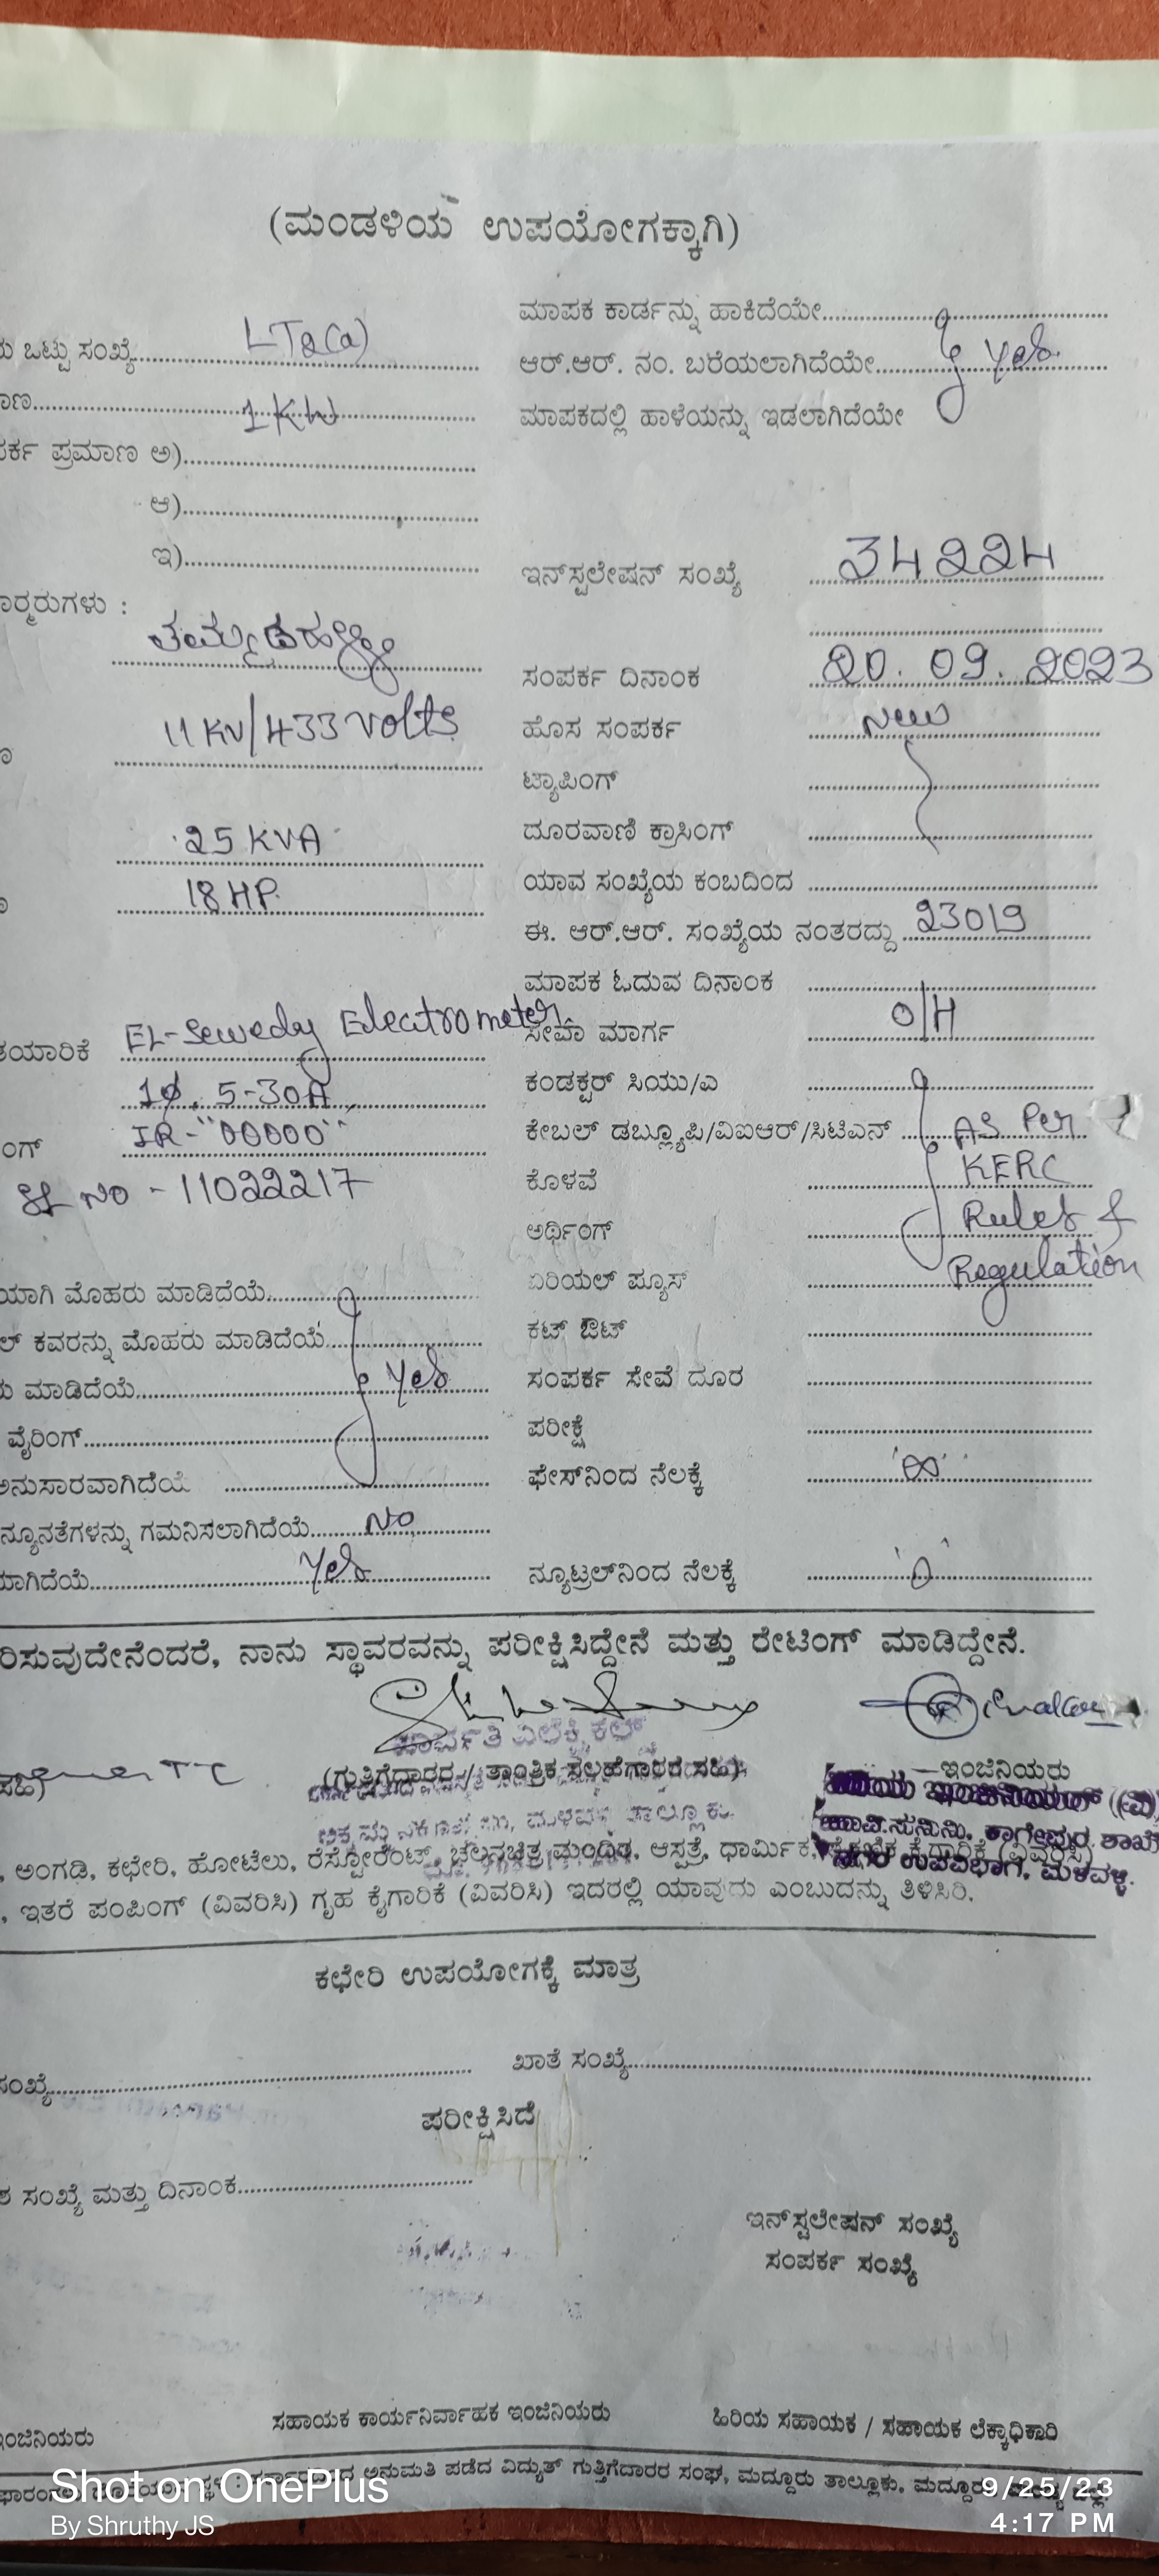 (ಮಂಡಳಿಯ ಉಪಯೋಗಕ್ಕಾಗಿ)
ಮಾಪಕ ಕಾರ್ಡನ್ನು ಹಾಕಿದೆಯೇ
ಒಟ್ಟು ಸಂಖ್ಯೆ LT2(a)
ಆರ್.ಆರ್. ನಂ. ಬರೆಯಲಾಗಿದೆಯೇ Yes.
1 KW
ಮಾಪಕದಲ್ಲಿ ಹಾಳೆಯನ್ನು ಇಡಲಾಗಿದೆಯೇ
ಪ್ರಮಾಣ ಅ)
ಆ)
ಇ)
ಇನ್‌ಸ್ಟಲೇಷನ್ ಸಂಖ್ಯೆ 34224
ತಮ್ಮಡಹಳ್ಳಿ
ಸಂಪರ್ಕ ದಿನಾಂಕ 20.09.2023
11 KV/433 volts
ಹೊಸ ಸಂಪರ್ಕ New
ಟ್ಯಾಪಿಂಗ್
25 KVA
ದೂರವಾಣಿ ಕ್ರಾಸಿಂಗ್
18 HP
ಯಾವ ಸಂಖ್ಯೆಯ ಕಂಬದಿಂದ
ಈ. ಆರ್.ಆರ್. ಸಂಖ್ಯೆಯ ನಂತರದ್ದು 23019
ಮಾಪಕ ಓದುವ ದಿನಾಂಕ
ತಯಾರಿಕೆ EL-Sewedy Electrometer
ಸೇವಾ ಮಾರ್ಗ O/H
1φ, 5-30A
ಕಂಡಕ್ಟರ್ ಸಿಯು/ಎ
IR-"00000"
ಕೇಬಲ್ ಡಬ್ಲ್ಯೂಪಿ/ವಿಐಆರ್/ಸಿಟಿಎನ್ As Per
Sl No - 11022217
ಕೊಳವೆ KERC
ಅರ್ಥಿಂಗ್ Rules &
ಏರಿಯಲ್ ಪ್ಯೂಸ್ Regulation
ಮೊಹರು ಮಾಡಿದೆಯೆ
ಕಟ್ ಔಟ್
ಕವರನ್ನು ಮೊಹರು ಮಾಡಿದೆಯೆ
ಸಂಪರ್ಕ ಸೇವೆ ದೂರ
ಮಾಡಿದೆಯೆ Yes
ಪರೀಕ್ಷೆ
ವೈರಿಂಗ್
ಫೇಸ್‌ನಿಂದ ನೆಲಕ್ಕೆ '∞'
ಅನುಸಾರವಾಗಿದೆಯೆ
ನ್ಯೂನತೆಗಳನ್ನು ಗಮನಿಸಲಾಗಿದೆಯೆ No
Yes
ನ್ಯೂಟ್ರಲ್‌ನಿಂದ ನೆಲಕ್ಕೆ '0'
ನಾನು ಸ್ಥಾವರವನ್ನು ಪರೀಕ್ಷಿಸಿದ್ದೇನೆ ಮತ್ತು ರೇಟಿಂಗ್ ಮಾಡಿದ್ದೇನೆ.
(ಗುತ್ತಿಗೆದಾರರ / ತಾಂತ್ರಿಕ ಸಲಹೆಗಾರರ ಸಹಿ)
ಇಂಜಿನಿಯರು
ಕಾಗೇಪುರ ಶಾಖೆ
ಉಪವಿಭಾಗ, ಮಳವಳ್ಳಿ.
, ಅಂಗಡಿ, ಕಛೇರಿ, ಹೋಟೆಲು, ರೆಸ್ಟೋರೆಂಟ್, ಚಲನಚಿತ್ರ ಮಂದಿರ, ಆಸ್ಪತ್ರೆ, ಧಾರ್ಮಿಕ, ಕೈಗಾರಿಕೆ (ವಿವರಿಸಿ)
, ಇತರೆ ಪಂಪಿಂಗ್ (ವಿವರಿಸಿ) ಗೃಹ ಕೈಗಾರಿಕೆ (ವಿವರಿಸಿ) ಇದರಲ್ಲಿ ಯಾವುದು ಎಂಬುದನ್ನು ತಿಳಿಸಿರಿ.
ಕಛೇರಿ ಉಪಯೋಗಕ್ಕೆ ಮಾತ್ರ
ಸಂಖ್ಯೆ
ಖಾತೆ ಸಂಖ್ಯೆ
ಪರೀಕ್ಷಿಸಿದೆ
ಸಂಖ್ಯೆ ಮತ್ತು ದಿನಾಂಕ
ಇನ್‌ಸ್ಟಲೇಷನ್ ಸಂಖ್ಯೆ
ಸಂಪರ್ಕ ಸಂಖ್ಯೆ
ಇಂಜಿನಿಯರು
ಸಹಾಯಕ ಕಾರ್ಯನಿರ್ವಾಹಕ ಇಂಜಿನಿಯರು
ಹಿರಿಯ ಸಹಾಯಕ / ಸಹಾಯಕ ಲೆಕ್ಕಾಧಿಕಾರಿ
ಅನುಮತಿ ಪಡೆದ ವಿದ್ಯುತ್ ಗುತ್ತಿಗೆದಾರರ ಸಂಘ, ಮದ್ದೂರು ತಾಲ್ಲೂಕು, ಮದ್ದೂರು
Shot on OnePlus
By Shruthy JS
9/25/23
4:17 PM